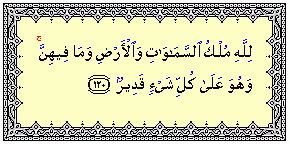 لِلَّهِ مُلْكُ ٱلسَّمَٰوَٰتِ وَٱلْأَرْضِ وَمَا فِيهِنَّ ۚ
وَهُوَ عَلَىٰ كُلِّ شَىْءٍ قَدِيرٌۢ ﴿١٢٠﴾